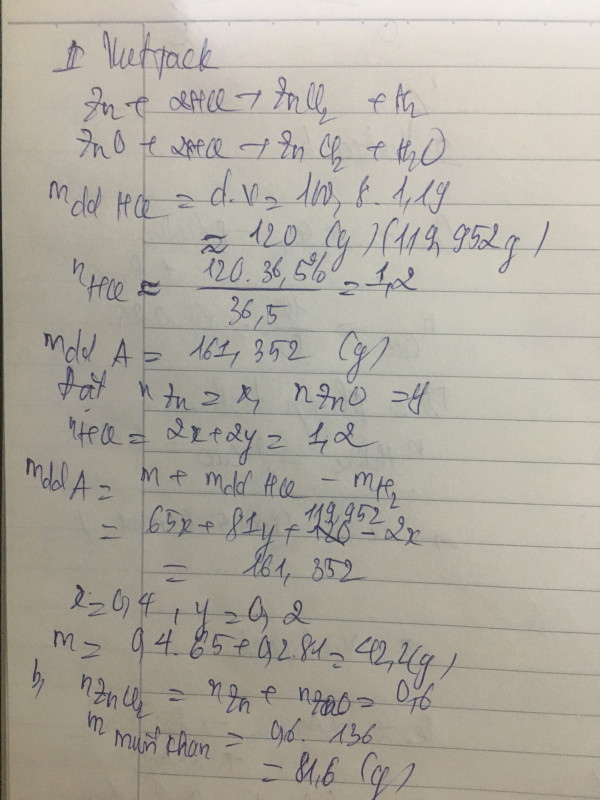 Zn + 2HCl → ZnCl₂ + H₂
ZnO + 2HCl → ZnCl₂ + H₂O
mdd HCl = d.V = 100,8.1,19
≈ 120 (g) (119,952g)
nHCl ≈ 120.36,5% / 36,5 = 1,2
mdd A = 161,352 (g)
Đặt nZn = x, nZnO = y
nHCl = 2x+2y = 1,2
mdd A = m + mdd HCl - mH₂
= 65x + 81y + 119,952 - 2x
= 161,352
x=0,4, y=0,2
m = 0,4.65+0,2.81=42,2(g)
b, nZnCl₂ = nZn + nZnO = 0,6
m muối khan = 0,6.136
= 81,6 (g)